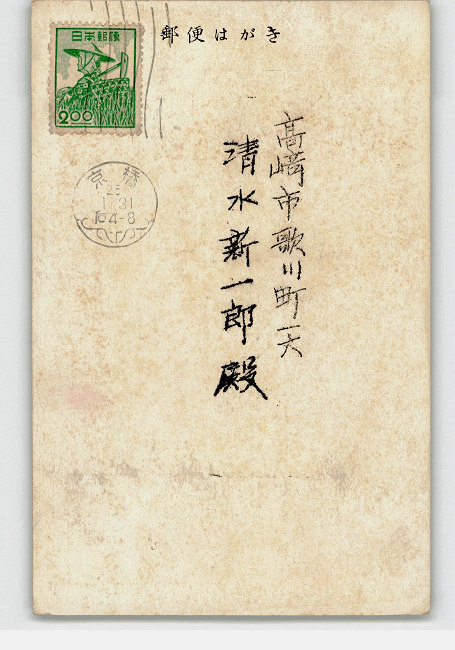 郵便はがき
日本郵便
2.00
京橋
1.31
4-8
高崎市歌川町一六
清水新一郎殿